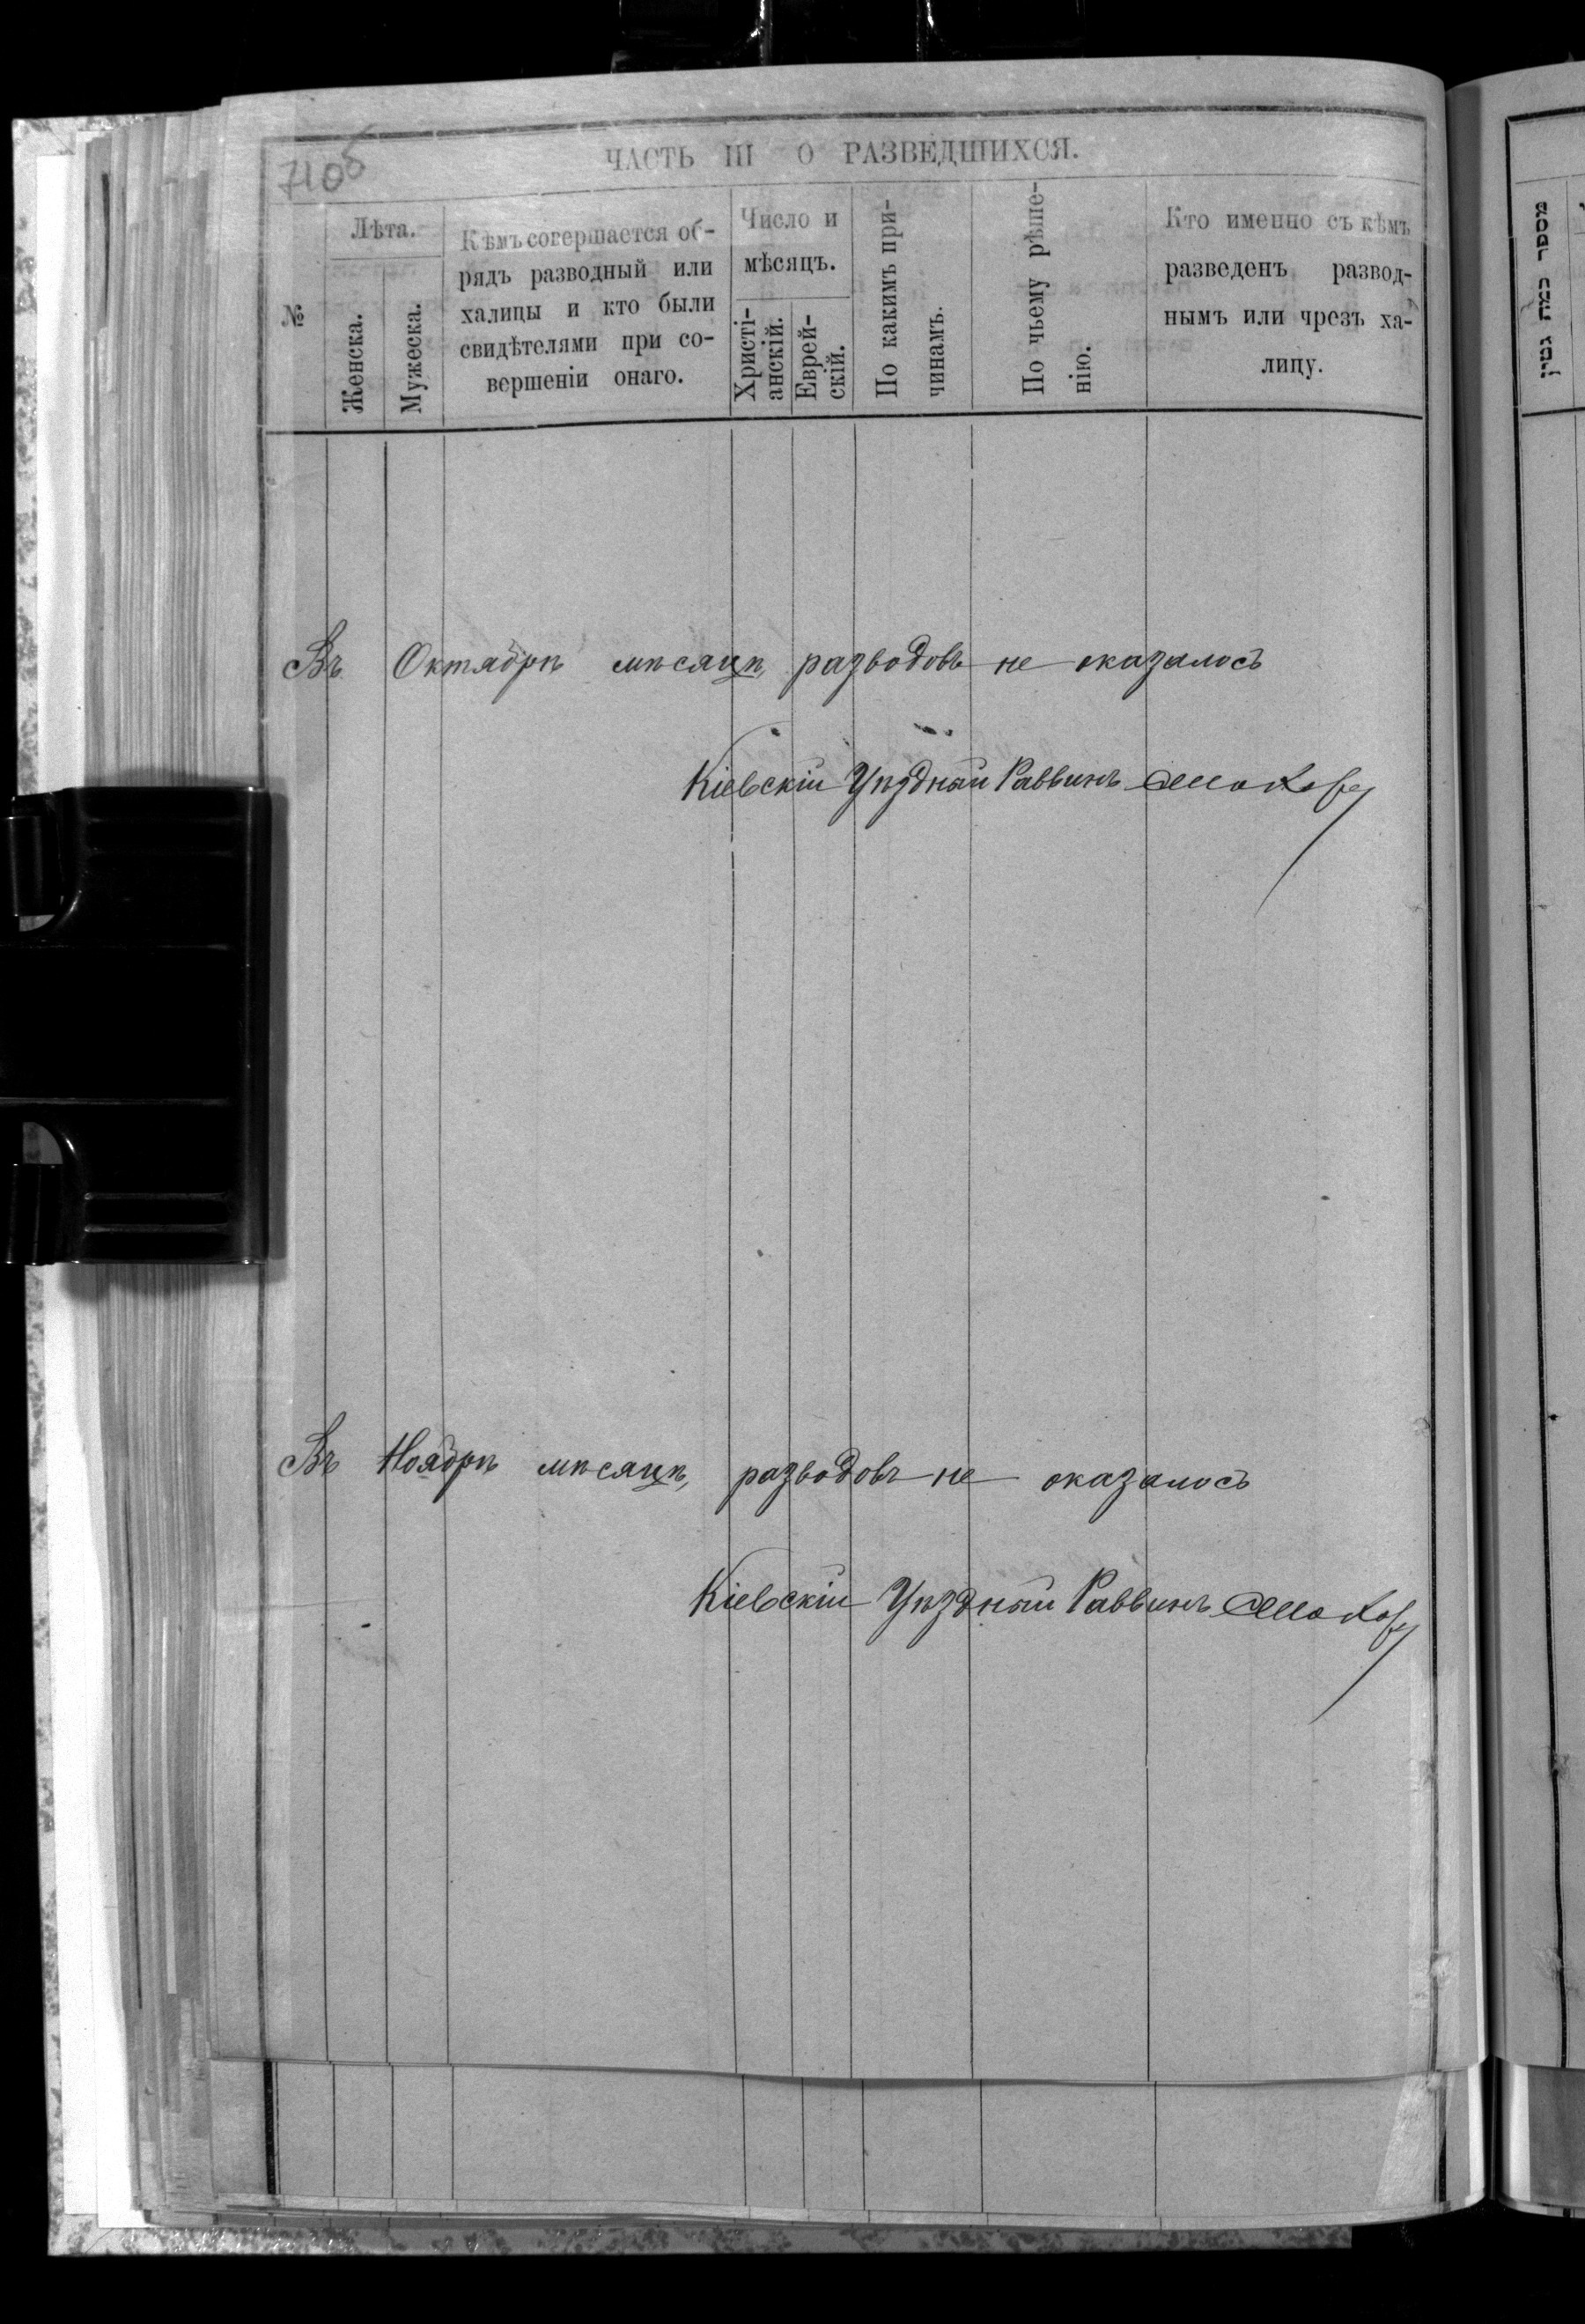 710б
ЧАСТЬ III О РАЗВЕДШИХСЯ.
№
Лѣта.
Женска.
Мужеска.
Кѣмъ совершается об-
рядъ разводный или
халицы и кто были
свидѣтелями при со-
вершеніи онаго.
Число и
мѣсяцъ.
Христі-
анскій.
Еврей-
скій.
По какимъ при-
чинамъ.
По чьему рѣше-
нію.
Кто именно съ кѣмъ
разведенъ развод-
нымъ или чрезъ ха-
лицу.
Въ Октябрѣ мѣсяцѣ, разводовъ не оказалось
Кіевскій Уѣздный Раввинъ
Въ Ноябрѣ мѣсяцѣ, разводовъ не оказалось
Кіевскій Уѣздный Раввинъ
מספר כמה גטין